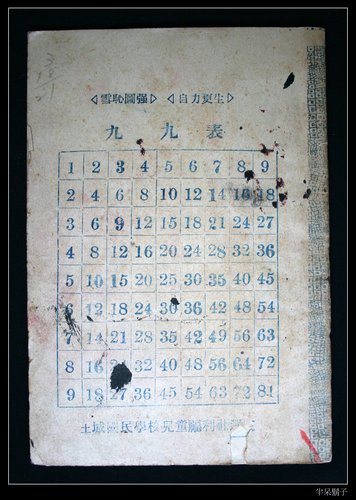 ◁雪恥圖强▷ ◁自力更生▷
九九表
1 2 3 4 5 6 7 8 9
2 4 6 8 10 12 14 16 18
3 6 9 12 15 18 21 24 27
4 8 12 16 20 24 28 32 36
5 10 15 20 25 30 35 40 45
6 12 18 24 30 36 42 48 54
7 14 21 28 35 42 49 56 63
8 16 24 32 40 48 56 64 72
9 18 27 36 45 54 63 72 81
土城國民學校兒童福利社
半呆鬍子